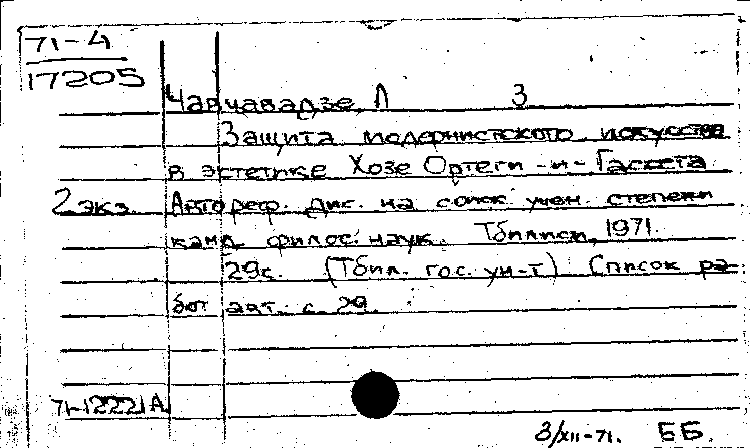 71-4
17205
Чавчавадзе, Л З
Защита модернистского искусства
в эстетике Хозе Ортеги-и-Гассета
2 экз. Автореф. дис. на соиск. учен. степени
канд. филос. наук. Тбилиси, 1971.
29 с. (Тбил. гос. ун-т) Список ра-
бот авт.: с. 29.
71-12221А
3/XII-71. ББ.